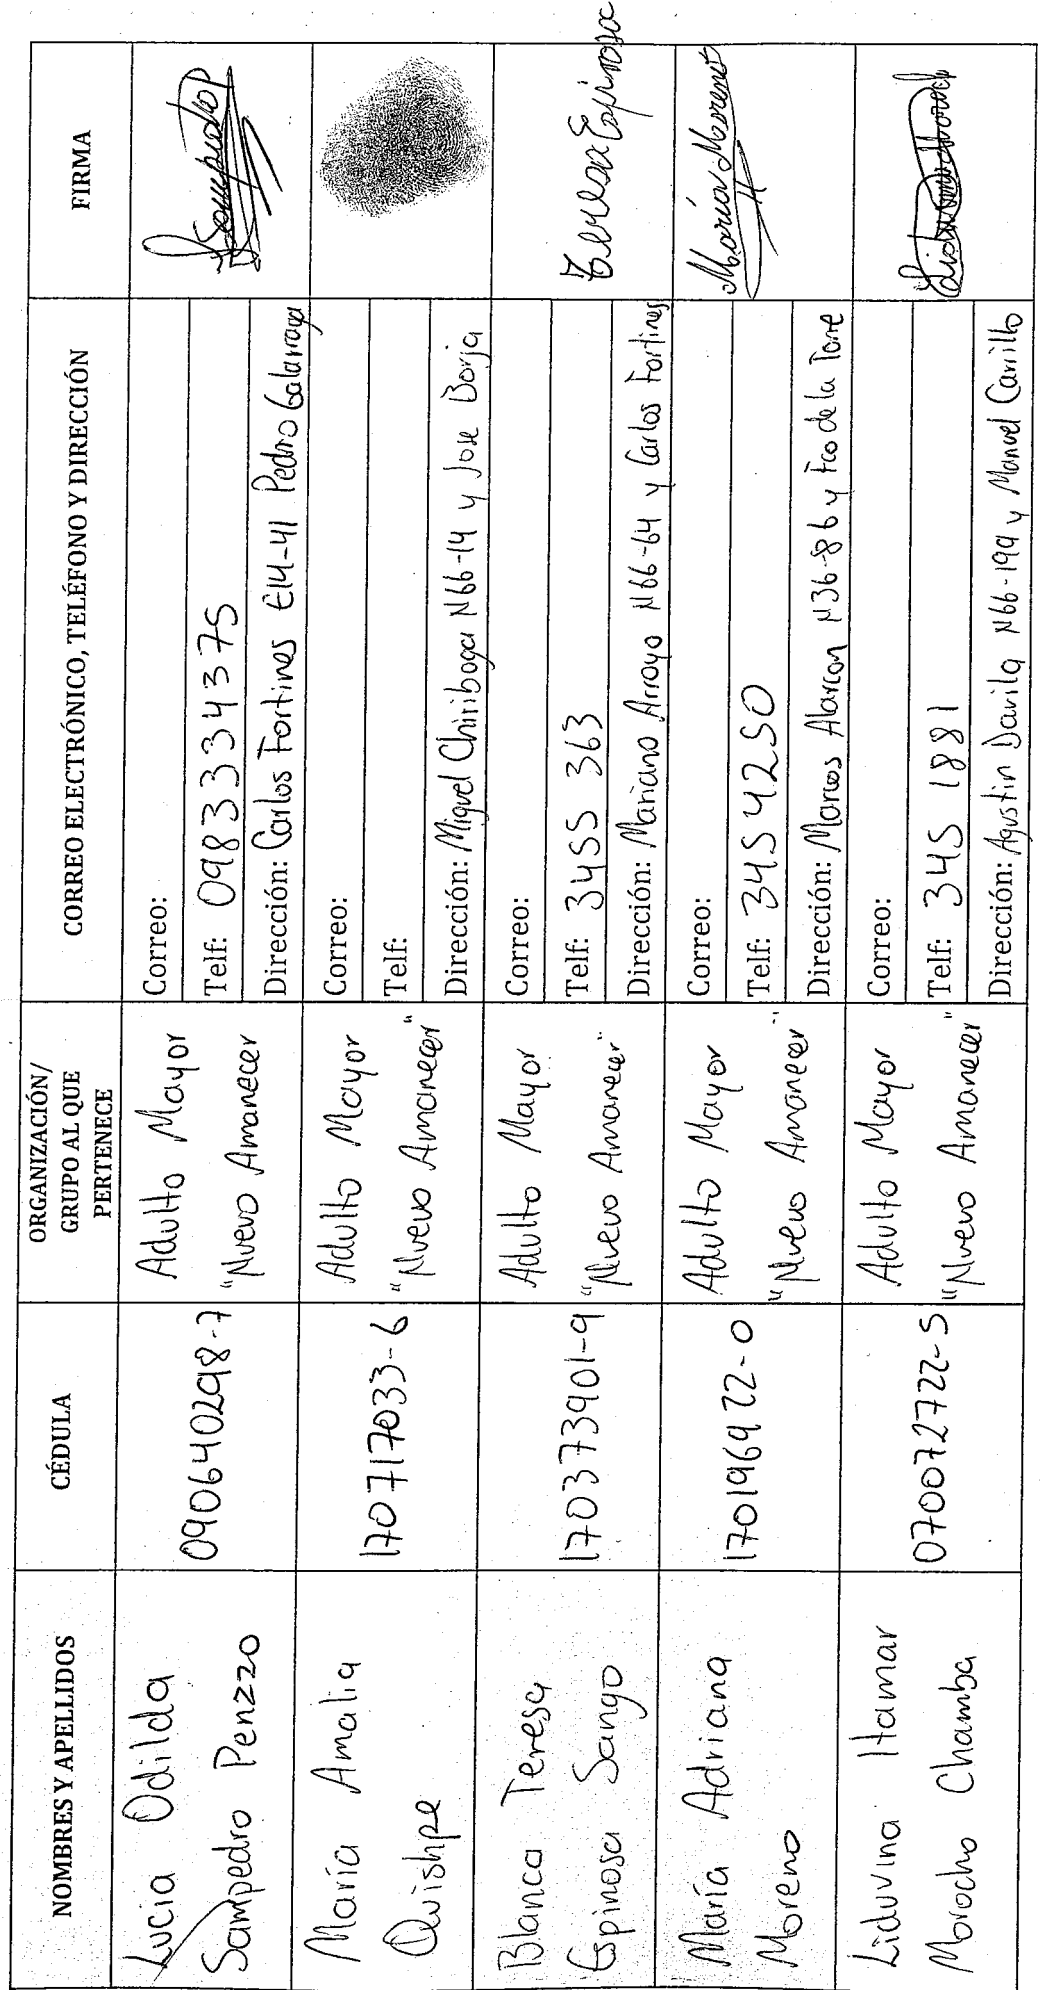 NOMBRES Y APELLIDOS
CÉDULA
ORGANIZACIÓN/
GRUPO AL QUE
PERTENECE
CORREO ELECTRÓNICO, TELÉFONO Y DIRECCIÓN
FIRMA
Lucia Odilda
Sampedro Penzzo
090640298-7
Adulto Mayor
"Nuevo Amanecer
Correo:
Telf: 0983334375
Dirección: Carlos Fortines E14-41 Pedro Galarraga
Sampedro
María Amalia
Quishpe
170717033-6
Adulto Mayor
"Nuevo Amanecer"
Correo:
Telf:
Dirección: Miguel Chiriboga N66-14 y Jose Borja
Blanca Teresa
Espinosa Sango
170373901-9
Adulto Mayor
"Nuevo Amanecer"
Correo:
Telf: 3455 363
Dirección: Mariano Arroyo N66-64 y Carlos Fortines
Teresa Espinosa
María Adriana
Moreno
170196922-0
Adulto Mayor
"Nuevo Amanecer"
Correo:
Telf: 345 4250
Dirección: Marcos Alarcon N36-86 y Fco de la Torre
María Moreno
Liduvina Itamar
Morocho Chamba
070072722-5
Adulto Mayor
"Nuevo Amanecer"
Correo:
Telf: 345 1881
Dirección: Agustin Davila N66-199 y Manuel Carrillo